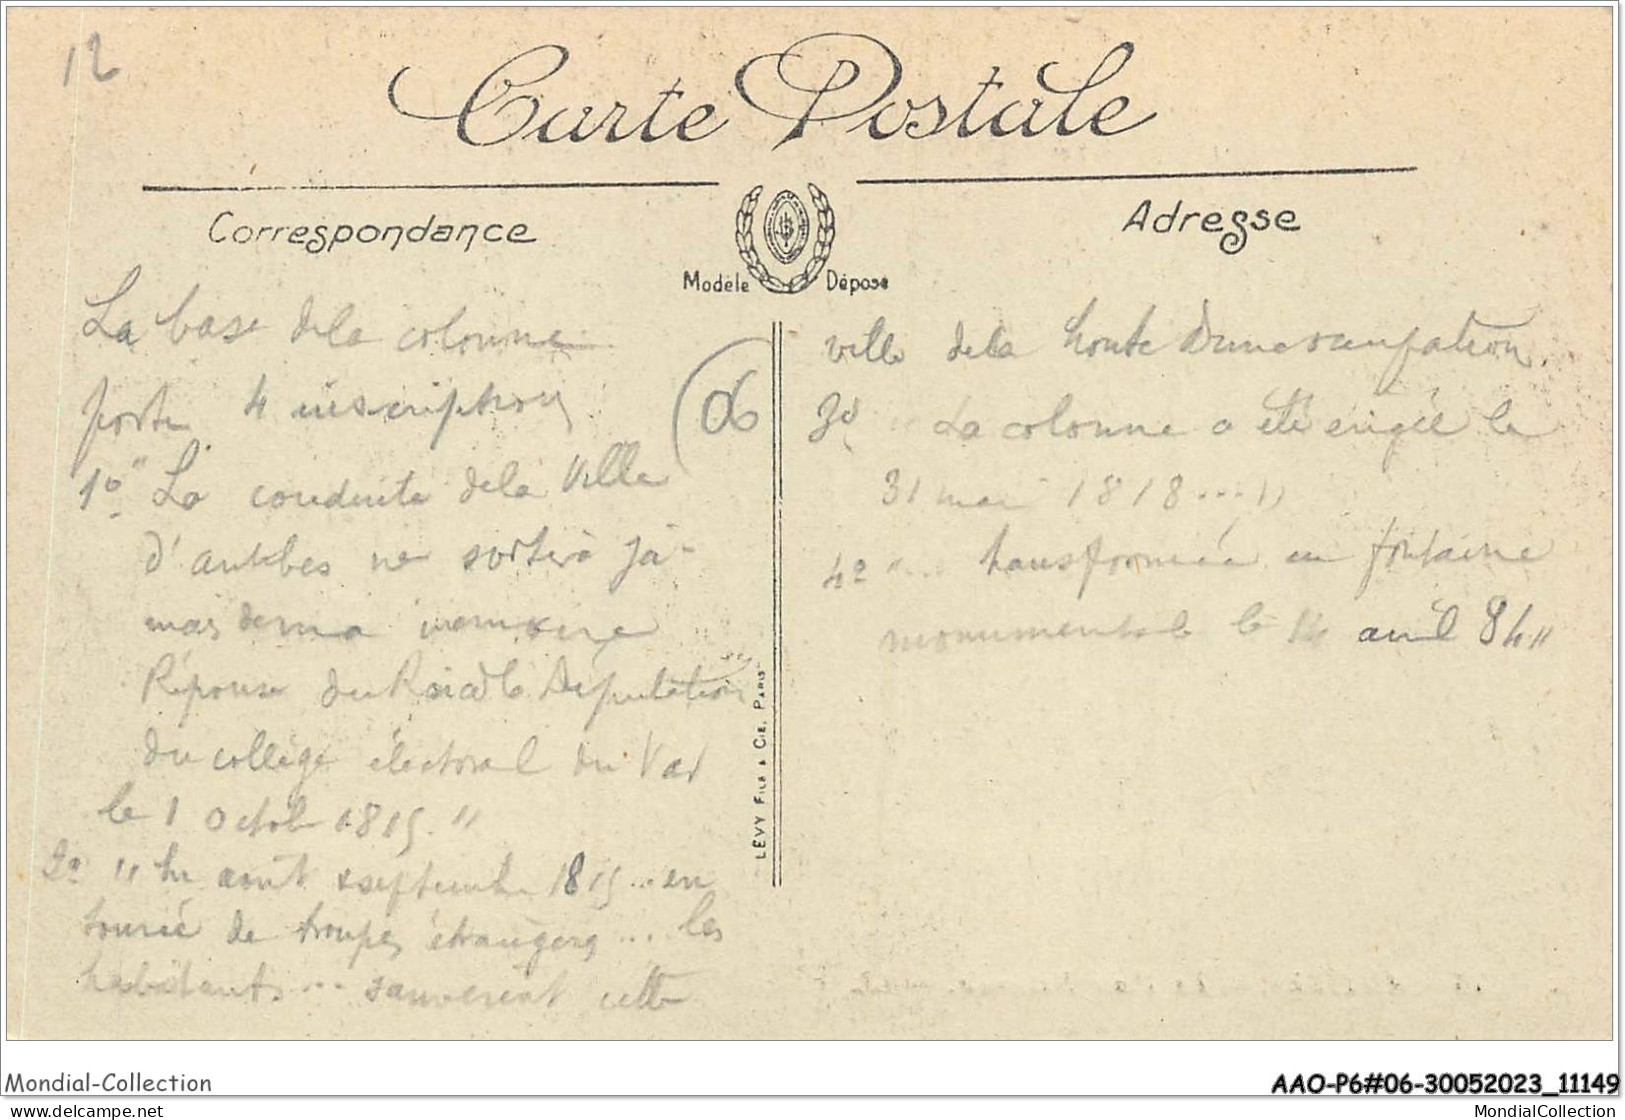 12
Carte Postale
Correspondance
Adresse
Modèle Déposé
La base de la colonne
porte 4 inscriptions
06
1º " La conduite de la Ville
d'antibes ne sortira ja-
mais de ma memoire
Réponse du Roi à la Députation
du collège électoral du Var
le 1 Octob 1815 "
2º " En août septembre 1815 ... en
tourée de troupes étrangères ... les
habitants ... sauverent cette
LÉVY FILS & CIE, PARIS
ville de la honte D'une occupation
3º La colonne a été érigée le
31 mai 1818 ... "
4º " ... transformée en fontaine
monumentale le 14 avril 84 "
Mondial-Collection
AAO-P6#06-30052023_11149
delcampe.net
MondialCollection